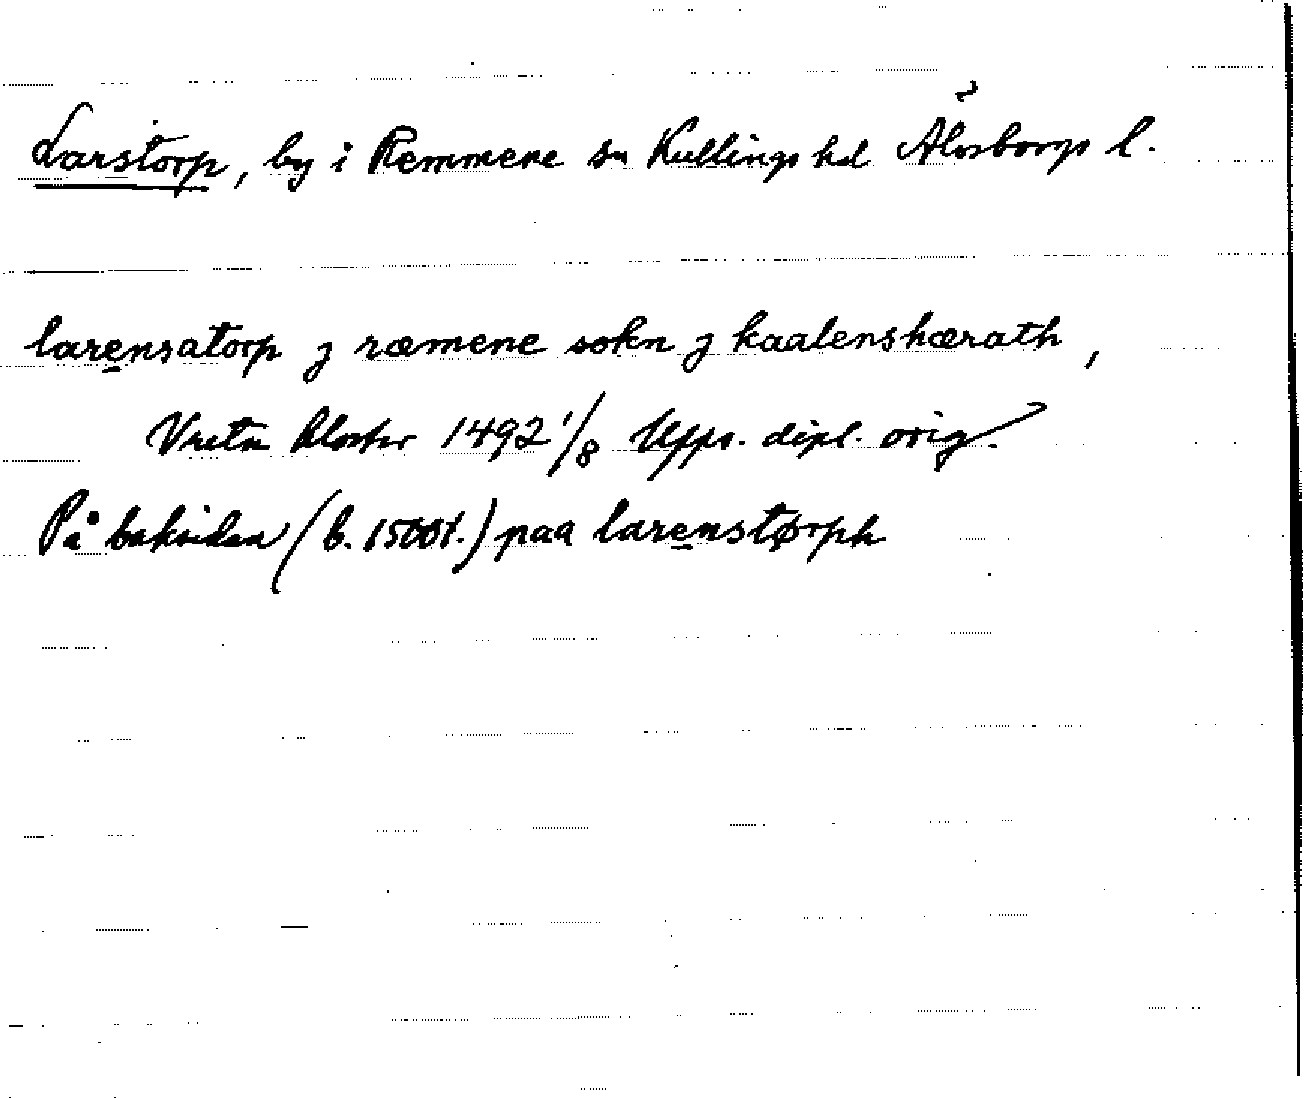 Larstorp, by i Remmene sn Kullings hd Älvsborgs l.
larensatorp j ræmene sokn j kaalenshærath,
Vreta kloster 1492 1/8 Upps. dipl. orig.
På baksidan (b. 1500t.) paa larenstørph